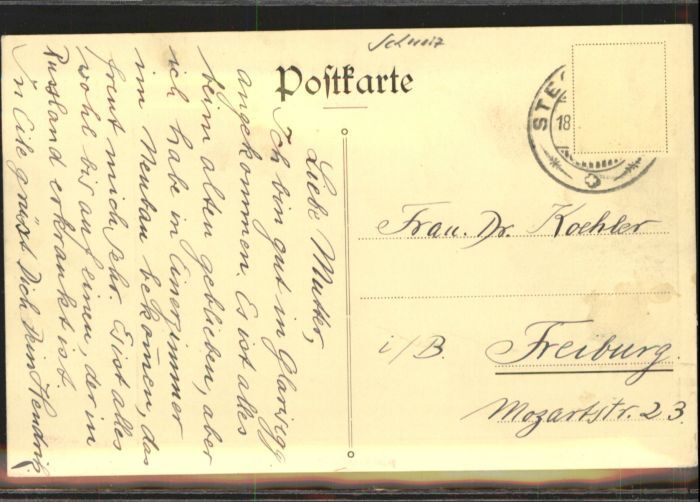 Schweiz
Postkarte
STE
18
Frau. Dr. Koehler
i/B. Freiburg.
Mozartstr. 23.
Liebe Mutter,
Ich bin gut in Glarisegg
angekommen. Es ist alles
beim alten geblieben, aber
ich habe in Einerzimmer
im Neubau bekomen, das
freut mich sehr. Es ist alles
wohl bis auf einen, der in
Russland erkrankt ist.
In Eile grüsst Dich Dein Hendrik